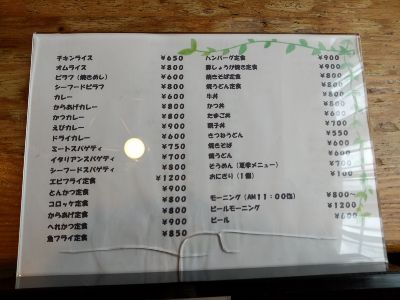 チキンライス ￥650
オムライス ￥800
ピラフ（焼きめし） ￥600
シーフードピラフ ￥800
カレー ￥600
からあげカレー ￥800
かつカレー ￥800
えびカレー ￥900
ドライカレー ￥600
ミートスパゲティ ￥750
イタリアンスパゲティ ￥700
シーフードスパゲティ ￥800
エビフライ定食 ￥1200
とんかつ定食 ￥900
コロッケ定食 ￥800
からあげ定食 ￥800
へれかつ定食 ￥900
魚フライ定食 ￥850
ハンバーグ定食 ￥900
豚しょうが焼き定食 ￥800
焼きそば定食 ￥800
焼うどん定食 ￥800
牛丼 ￥800
かつ丼 ￥800
たまご丼 ￥600
親子丼 ￥700
きつねうどん ￥550
焼きそば ￥600
焼うどん ￥600
そうめん（夏季メニュー） ￥700
おにぎり（1個） ￥100
モーニング（AM11：00迄） ￥800～
ビールモーニング ￥1200
ビール ￥600